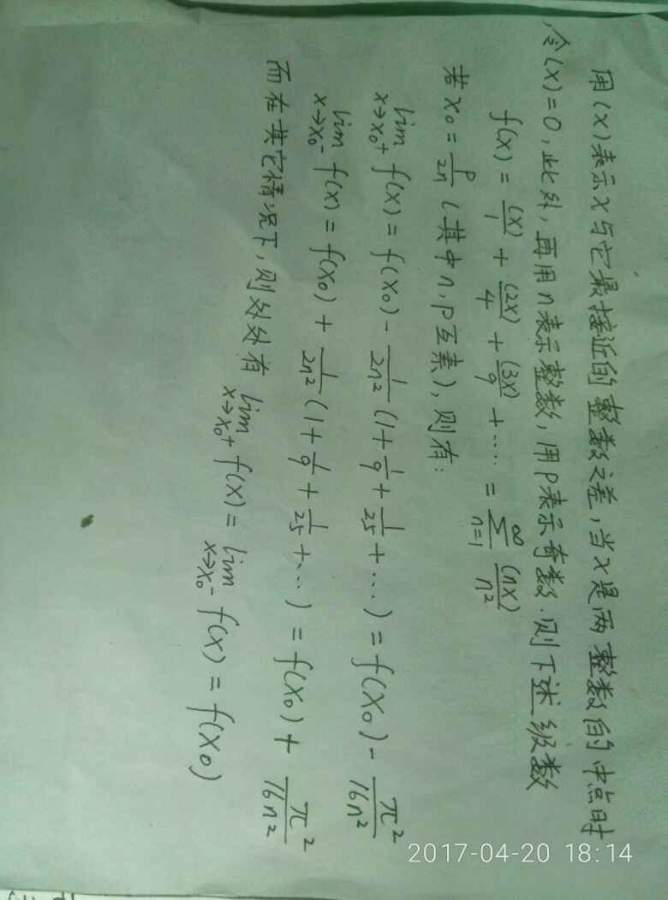 用(x)表示x与它最接近的整数之差,当x是两整数的中点时
,令(x)=0,此外,再用n表示整数,用p表示奇数.则下述级数
f(x) = (x)/1 + (2x)/4 + (3x)/9 + ···· = ∑_{n=1}^{∞} (nx)/n²
若x₀ = p/2n (其中n,p互素),则有:
lim_{x→x₀⁺} f(x) = f(x₀) - 1/2n² (1 + 1/9 + 1/25 + ···) = f(x₀) - π²/16n²
lim_{x→x₀⁻} f(x) = f(x₀) + 1/2n² (1 + 1/9 + 1/25 + ···) = f(x₀) + π²/16n²
而在其它情况下,则处处有 lim_{x→x₀⁺} f(x) = lim_{x→x₀⁻} f(x) = f(x₀)
2017-04-20 18:14